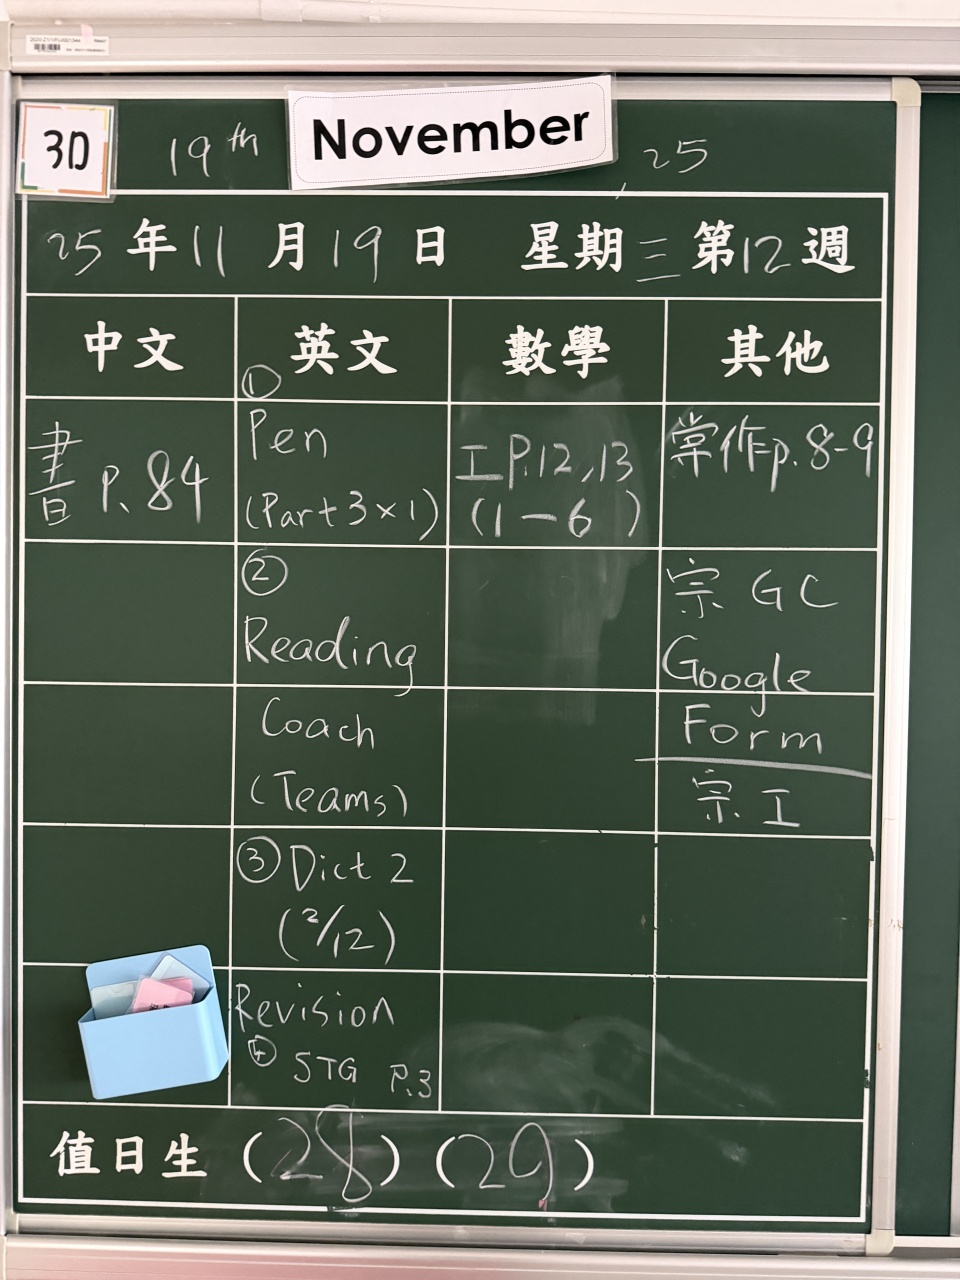 3D
19th November 25
25年11月19日 星期三 第12週
中文 英文 數學 其他
書 P. 84
①
Pen
(Part 3×1)
②
Reading
Coach
(Teams)
③ Dict 2
(2/12)
Revision
④ STG P.3
工 P.12,13
(1-6)
常作p.8-9
宗 GC
Google
Form
宗 工
值日生 (28) (29)